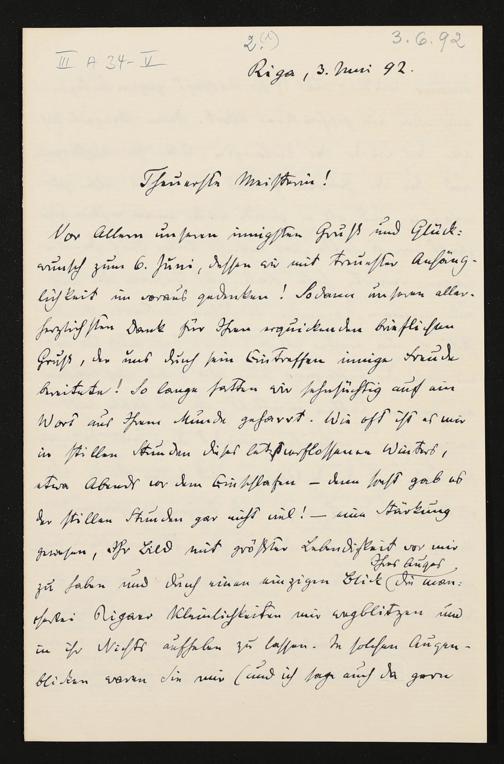 III A 34-V
2.(1)
3.6.92
Riga, 3. Juni 92.
Theuerste Meisterin!
Vor Allem unseren innigsten Gruß und Glück-
wunsch zum 6. Juni, dessen wir mit treuester Anhäng-
lichkeit im voraus gedenken! Sodann unseren aller-
herzlichsten Dank für Ihren erquickenden brieflichen
Gruß, der uns durch sein Eintreffen innige Freude
bereitete! So lange hatten wir sehnsüchtig auf ein
Wort aus Ihrem Munde geharrt. Wie oft ist es mir
in stillen Stunden dieses letztverflossenen Winters,
etwa Abends vor dem Einschlafen – denn sonst gab es
der stillen Stunden gar nicht viel! – eine Stärkung
gewesen, Ihr Bild mit größter Lebendigkeit vor mir
zu haben und durch einen einzigen Blick Ihres Auges die man-
cherlei Rigaer Kleinlichkeiten mir wegblitzen und
in ihr Nichts auflösen zu lassen. In solchen Augen-
blicken waren Sie mir (und ich sage auch da gern